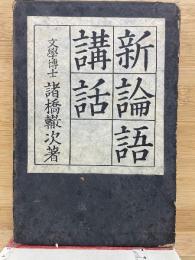 新論語
講話
文學博士 諸橋轍次著